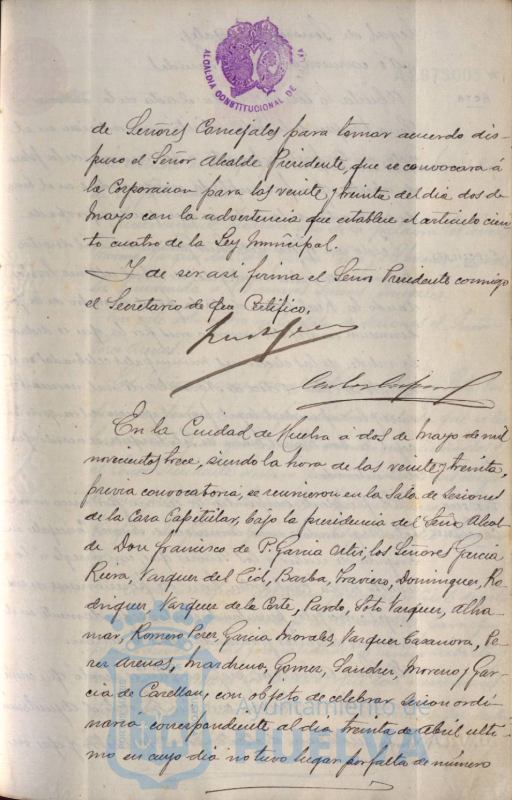 ALCALDIA CONSTITUCIONAL DE
de Señores Concejales para tomar acuerdo dis-
puso el Señor Alcalde Presidente, que se convocara á
la Corporacion para las veinte y treinta del dia dos de
Mayo con la advertencia que establece el articulo cien-
to cuatro de la Ley Municipal.
Y de ser asi firma el Señor Presidente conmigo
el Secretario de que Certifico.
En la Ciudad de Huelva á dos de Mayo de mil
novecientos trece, siendo la hora de las veinte y treinta,
previa convocatoria, se reunieron en la Sala de Sesiones
de la Casa Capitular, bajo la presidencia del Señor Alcal-
de Don Francisco de P. Garcia Ortiz, los Señores Garcia
Riera, Vazquez del Cid, Barba, Traviero, Dominguez, Ro-
driguez, Vazquez de la Corte, Pardo, Soto Vazquez, Alha-
mar, Romero Perez, Garcia Morales, Vazquez Casanova, Pe-
rez Arenas, Mardreno, Gomez, Sanchez Moreno y Gar-
cia de Carellan, con objeto de celebrar sesion ordi-
naria correspondiente al dia treinta de Abril ulti-
mo en cuyo dia no tuvo lugar por falta de número
Ayuntamiento de
HUELVA